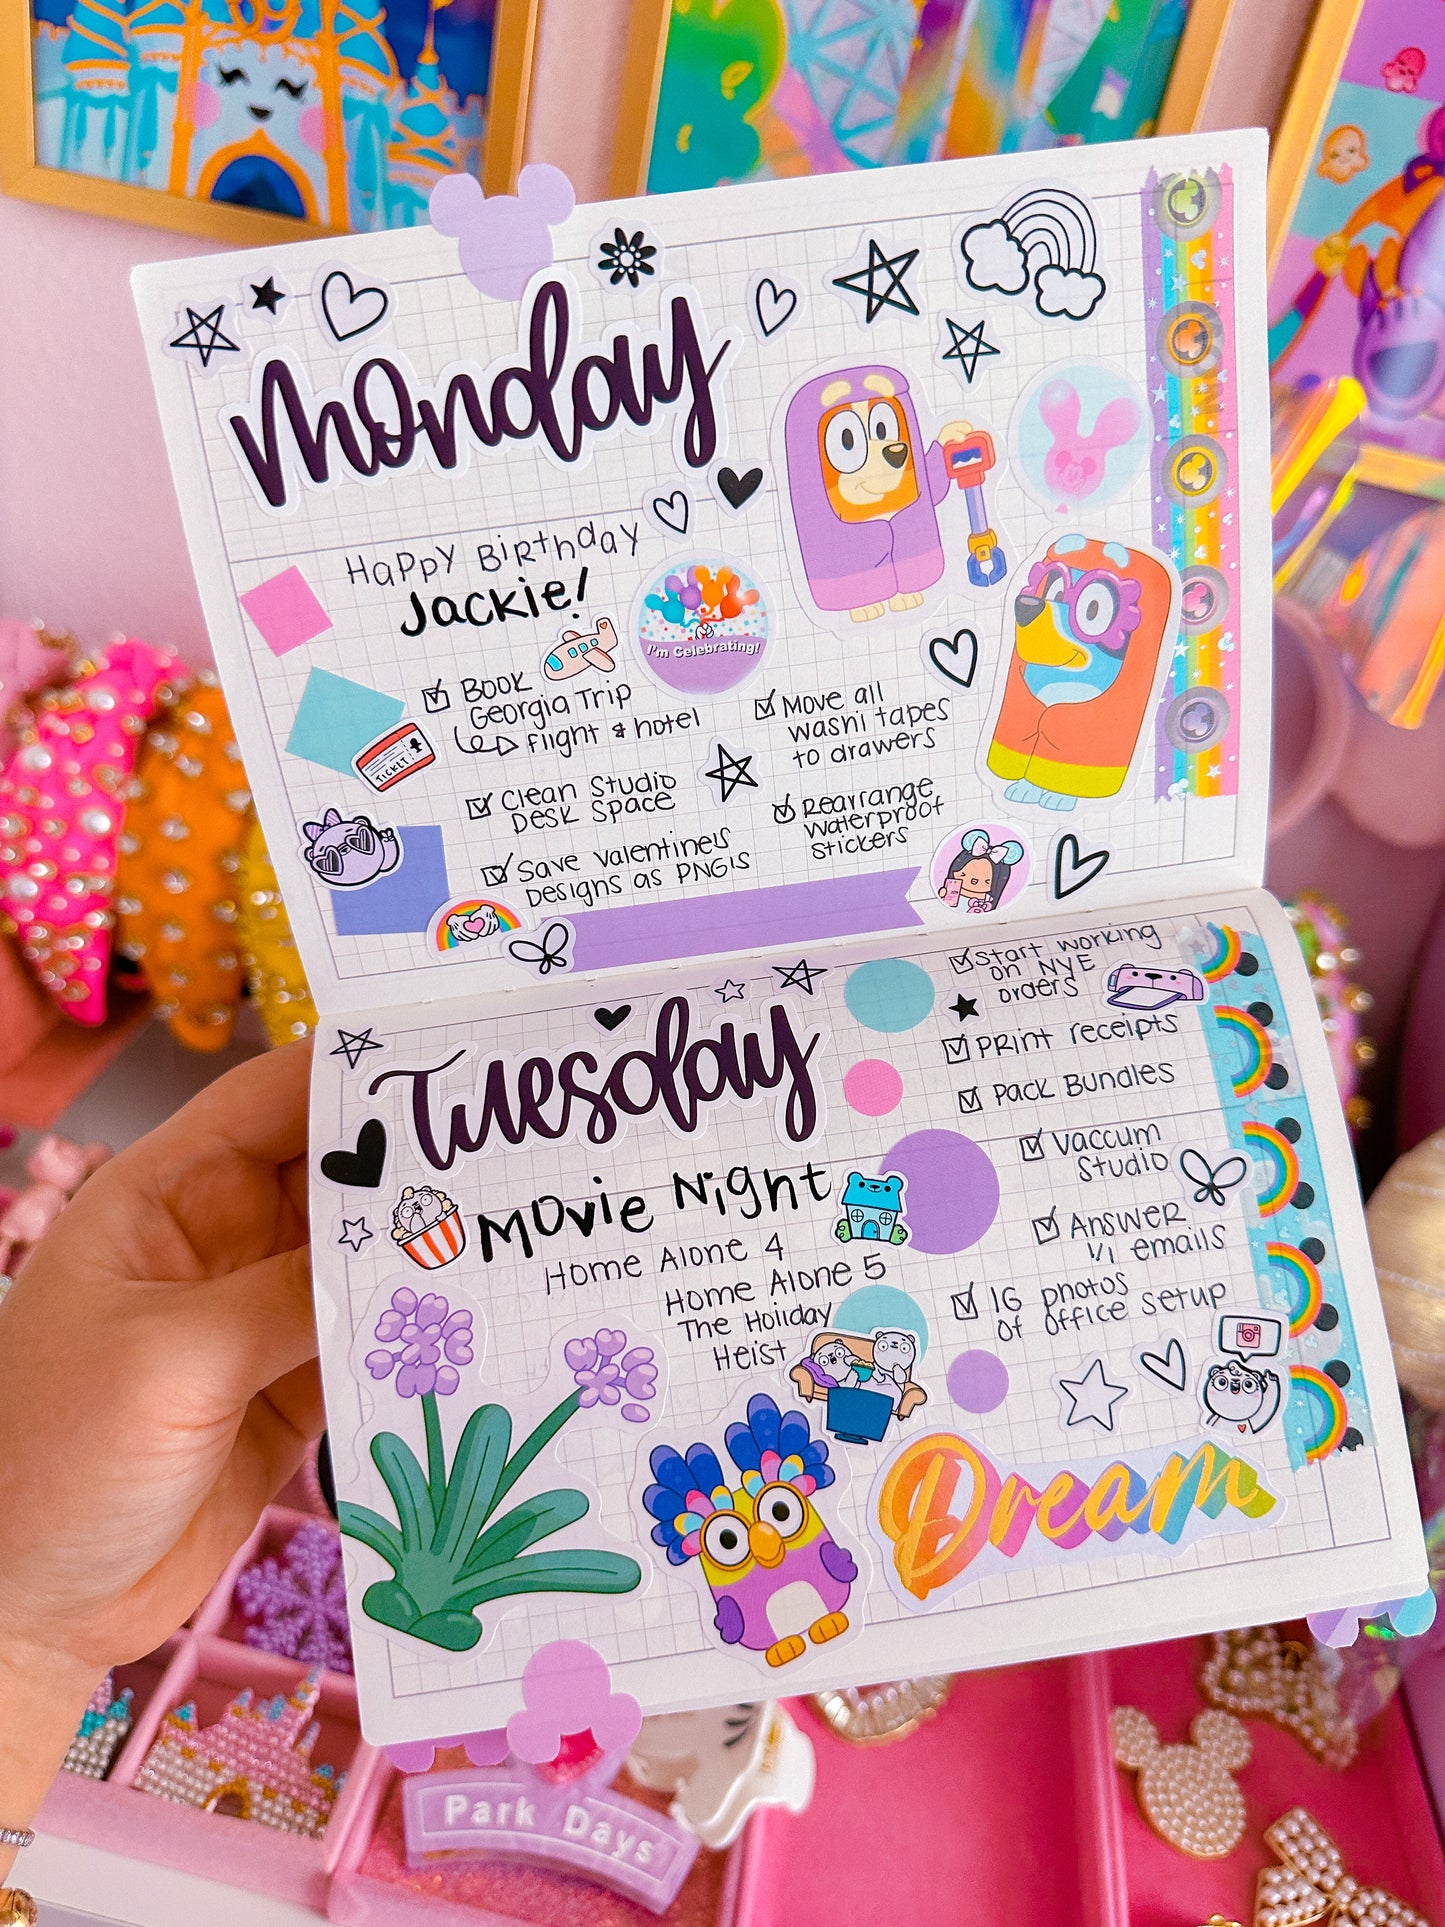 Monday
Happy Birthday
Jackie!
I'm Celebrating!
Book
Georgia Trip
flight & hotel
TICKET
Clean Studio
Desk Space
Save Valentine's
Designs as PNG's
Move all
washi tapes
to drawers
Rearrange
Waterproof
Stickers
Tuesday
Movie Night
Home Alone 4
Home Alone 5
The Holiday
Heist
Start working
on NYE
orders
Print receipts
Pack Bundles
Vaccum
Studio
Answer
1/1 emails
IG photos
of office setup
Dream
Park Days